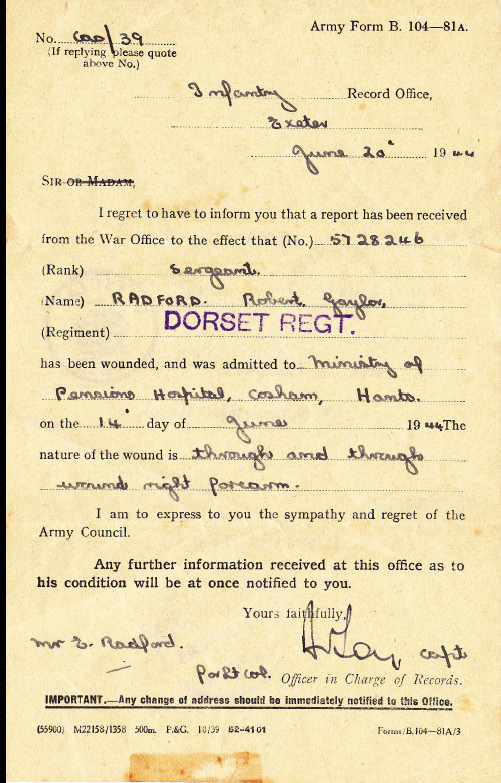 Army Form B. 104—81A.
No. Cas/39
(If replying please quote
above No.)
Infantry Record Office,
Exeter
June 20' 1944
SIR OR MADAM,
I regret to have to inform you that a report has been received
from the War Office to the effect that (No.) 5728246
(Rank) Sergeant.
(Name) RADFORD. Robert Gaylor,
(Regiment) DORSET REGT.
has been wounded, and was admitted to Ministry of
Pensions Hospital, Cosham, Hants.
on the 14' day of June 1944 The
nature of the wound is through and through
wound right forearm.
I am to express to you the sympathy and regret of the
Army Council.
Any further information received at this office as to
his condition will be at once notified to you.
Yours faithfully,
Mr E. Radford. Capt
for Lt Col. Officer in Charge of Records.
IMPORTANT.—Any change of address should be immediately notified to this Office.
(55900) M22158/1358 500m. P.&G. 10/39 52-4161 Forms/B.104—81A/3